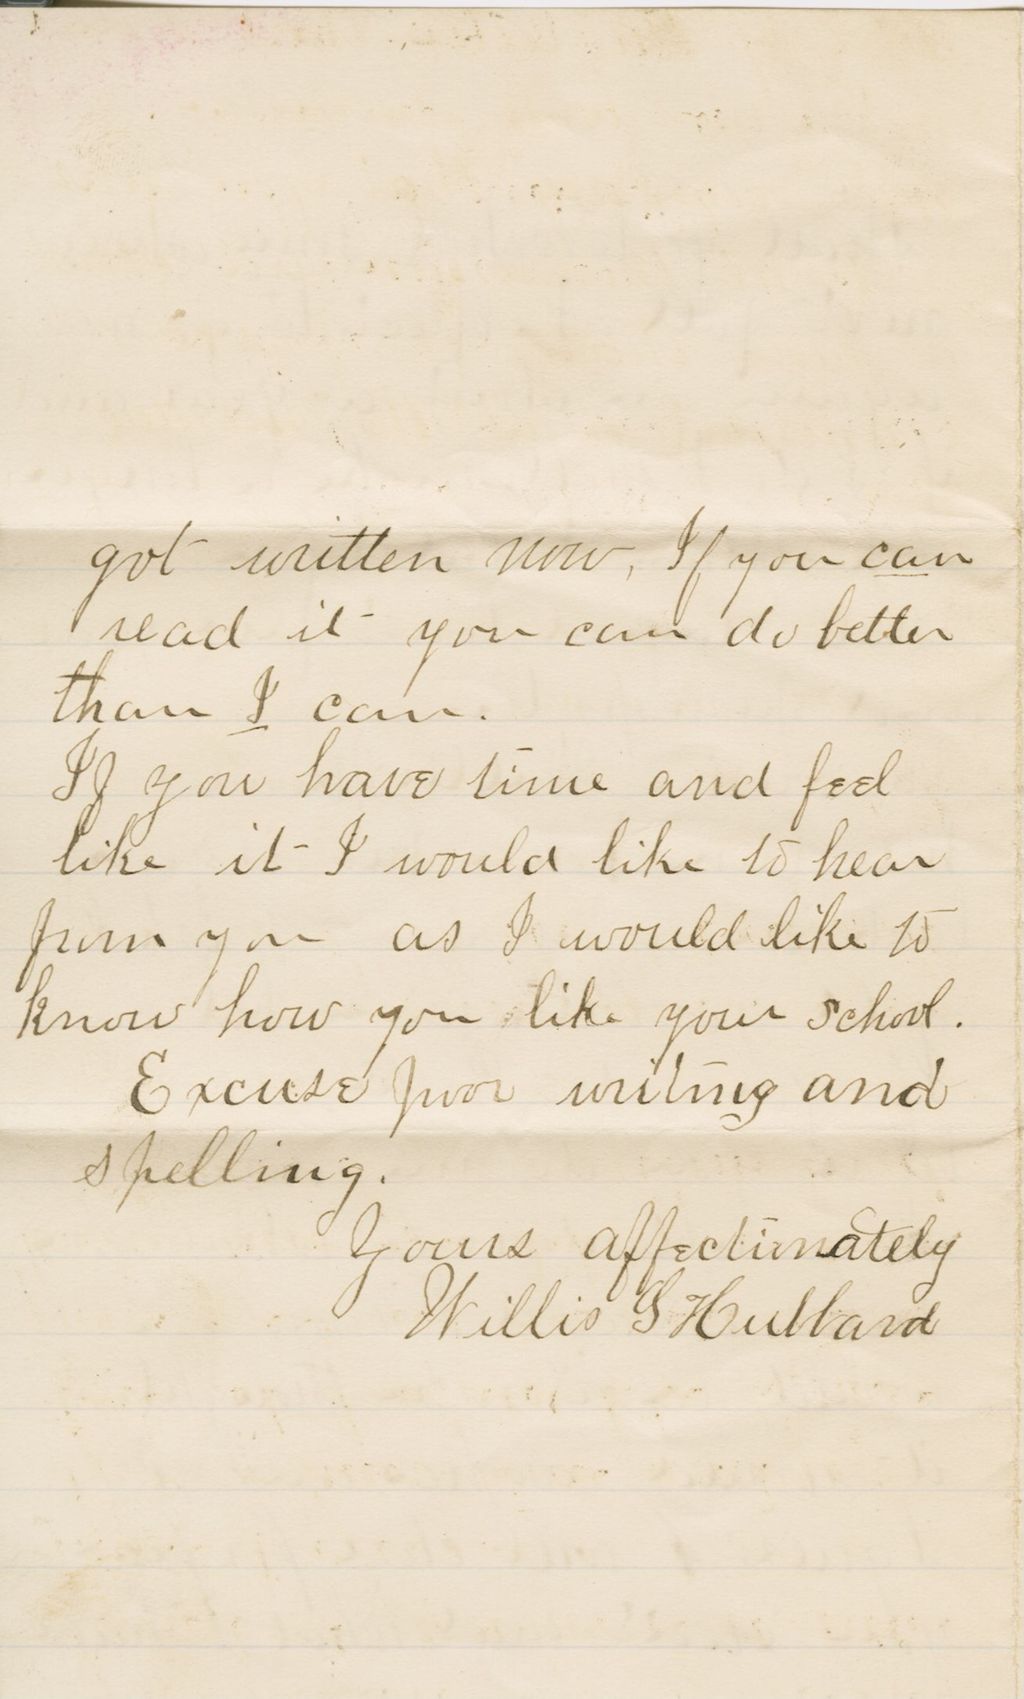 got written now, If you can
read it you can do better
than I can.
If you have time and feel
like it I would like to hear
from you as I would like to
know how you like your school.
Excuse poor writing and
spelling.
Yours affectionately
Willis G Hubbard